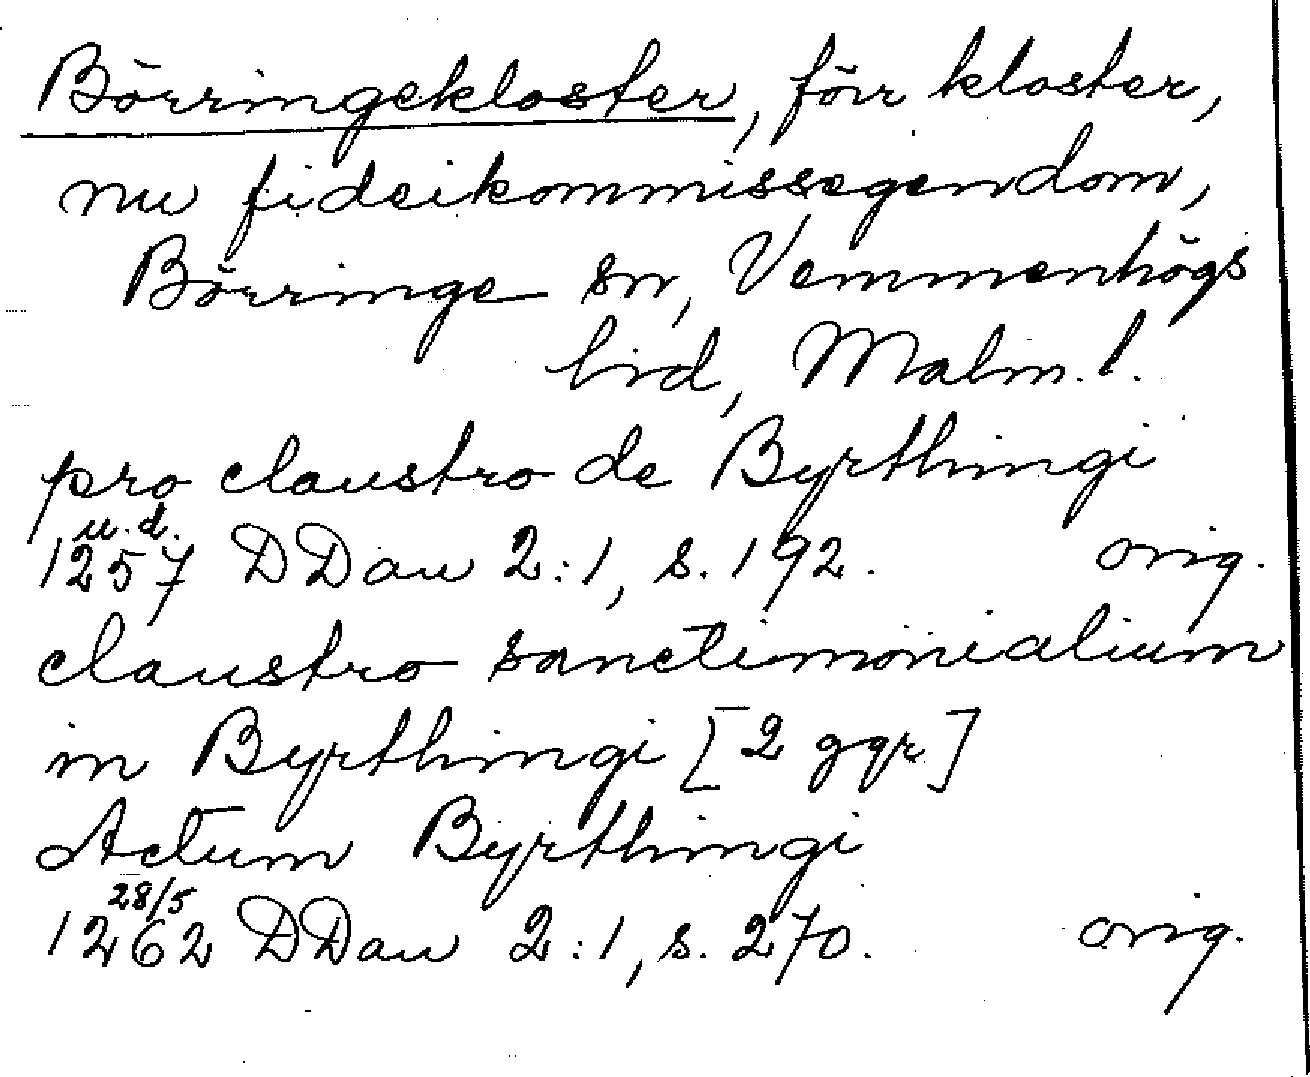 Börringekloster, förr kloster,
nu fideikommissegendom,
Börringe sn, Vemmenhögs
hrd, Malm. l.
pro claustro de Byrthingi
u. d.
1257 DDan 2:1, s. 192. orig.
claustro sanctimonialium
in Byrthingi [2 ggr]
Actum Byrthingi
28/5
1262 DDan 2:1, s. 270. orig.